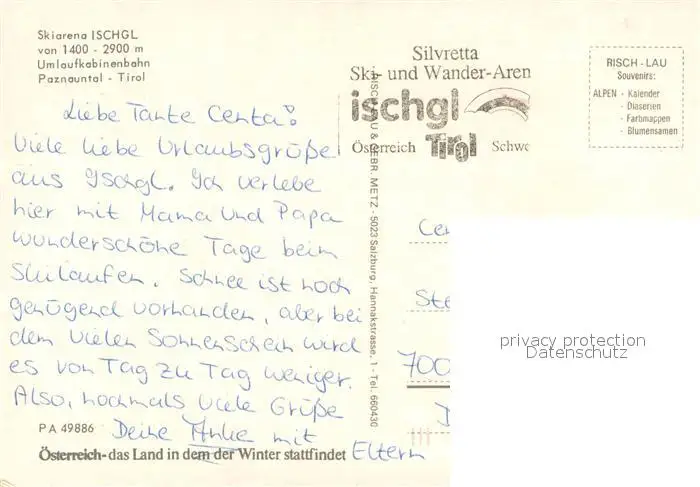 Skiarena ISCHGL
von 1400 - 2900 m
Umlaufkabinenbahn
Paznauntal - Tirol
Liebe Tante Centa!
Viele liebe Urlaubsgrüße
aus Ischgl. Ich verlebe
hier mit Mama und Papa
wunderschöne Tage beim
Skilaufen. Schnee ist noch
genügend vorhanden, aber bei
dem vielen Sonnenschein wird
es von Tag zu Tag weniger.
Also, nochmals viele Grüße
Deine Anke mit
Eltern
PA 49886
Österreich-das Land in dem der Winter stattfindet
& GEBR. METZ - 5023 Salzburg, Hannakstrasse, 1 - Tel. 660430
Silvretta
Ski- und Wander-Aren
ischgl
Österreich Tirol Schwe
RISCH-LAU
Souvenirs:
ALPEN - Kalender
- Diaserien
- Farbmappen
- Blumensamen
Cen
Ste
700
privacy protection
Datenschutz